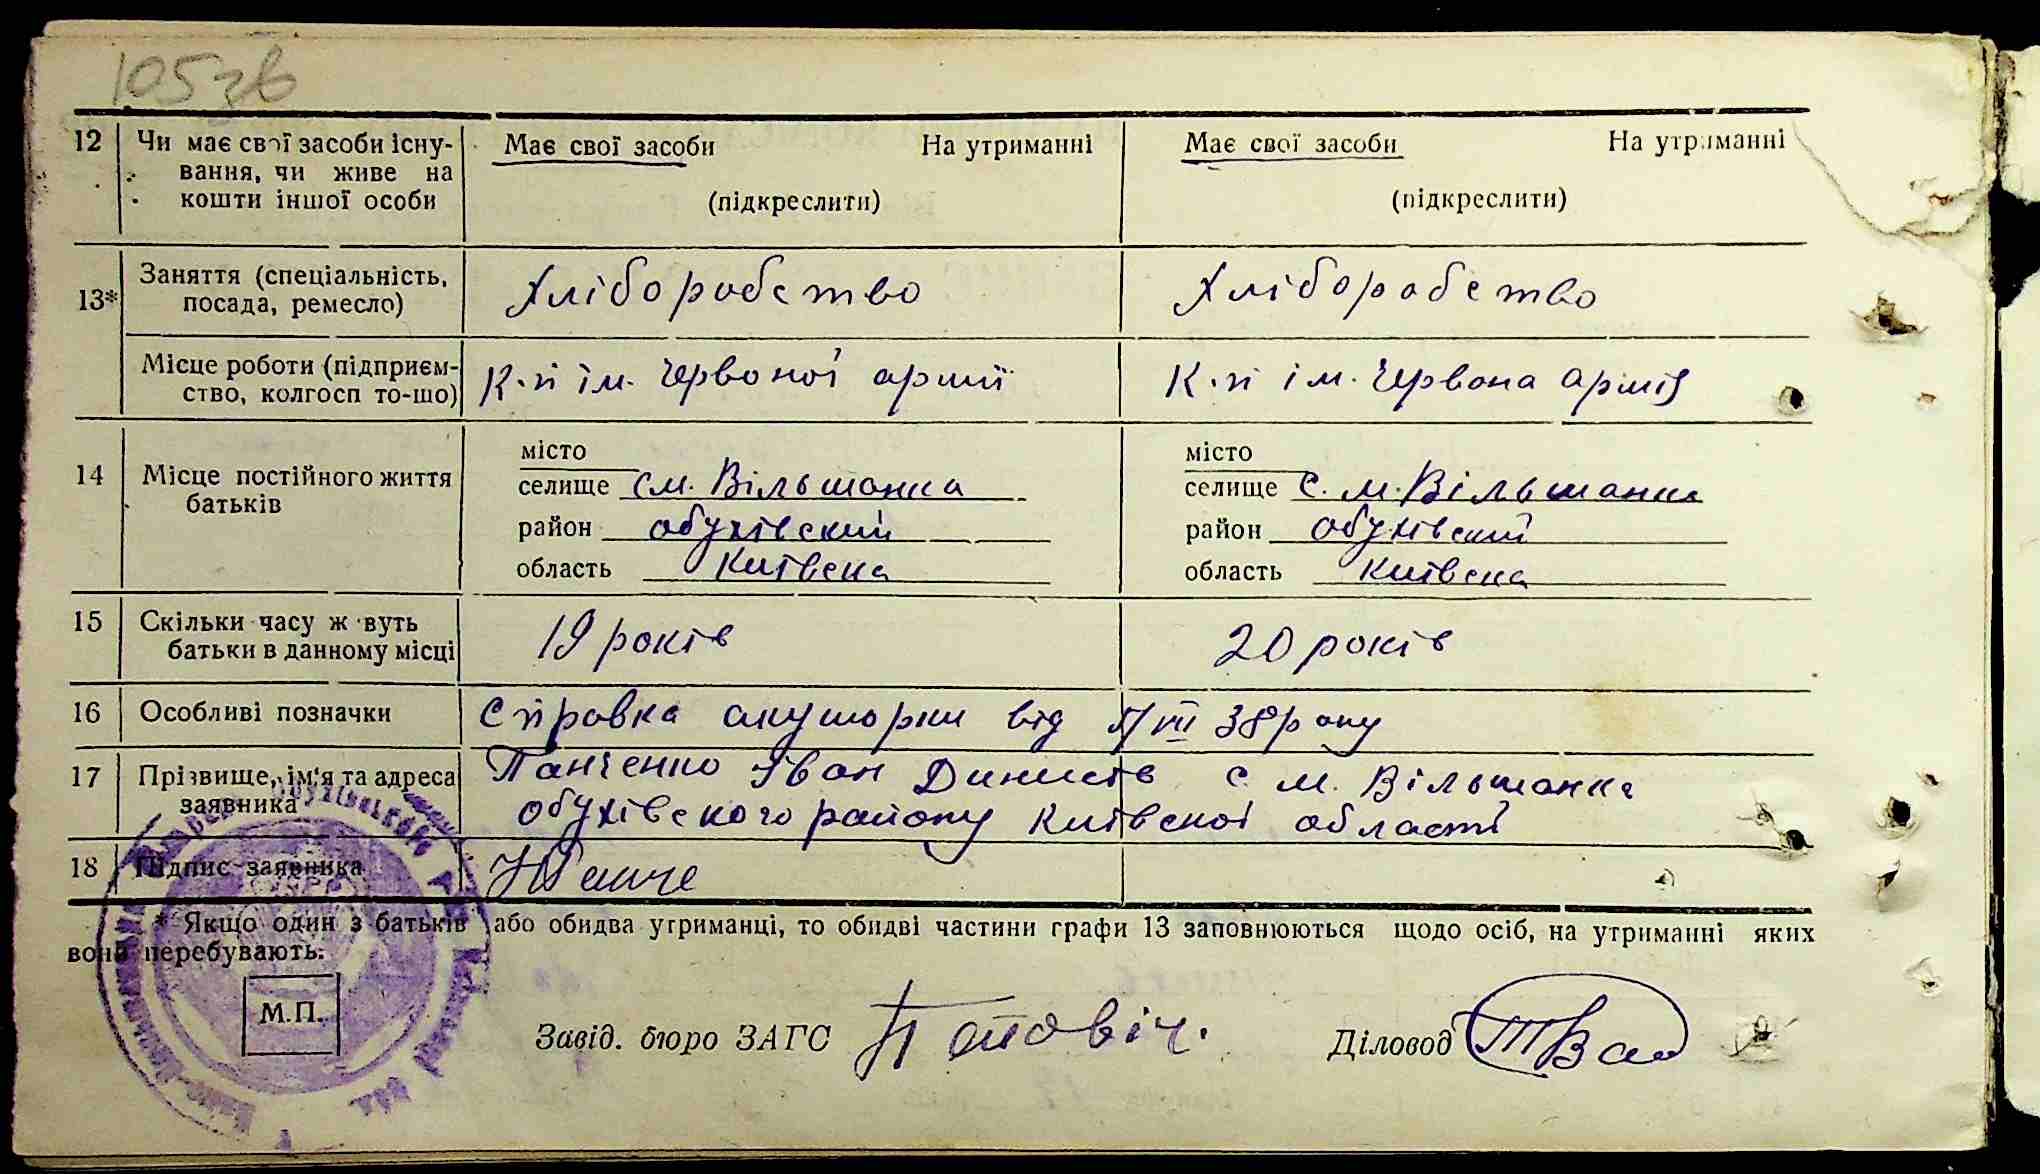 105зв
12 Чи має свої засоби існу- Має свої засоби На утриманні Має свої засоби На утриманні
вання, чи живе на
кошти іншої особи (підкреслити) (підкреслити)
Заняття (спеціальність, Хліборобство Хліборобство
13* посада, ремесло)
Місце роботи (підприєм- К-п ім. Червоної армії К-п ім. Червона армія
ство, колгосп то-що)
місто місто
14 Місце постійного життя селище с м. Вільшанка селище с. м. Вільшанка
батьків район обухівский район обухівский
область Київска область Київска
15 Скільки часу ж вуть 19 років 20 років
батьки в данному місці
16 Особливі позначки Справка акушорки від 5/VII 38 року
17 Прізвище, ім'я та адреса Панченко Іван Динисів с. м. Вільшанка
заявника обухівского району Київскої області
18 Підпис заявника
* Якщо один з батьків або обидва утриманці, то обидві частини графи 13 заповнюються щодо осіб, на утриманні яких
вони перебувають.
М.П.
Завід. бюро ЗАГС Діловод